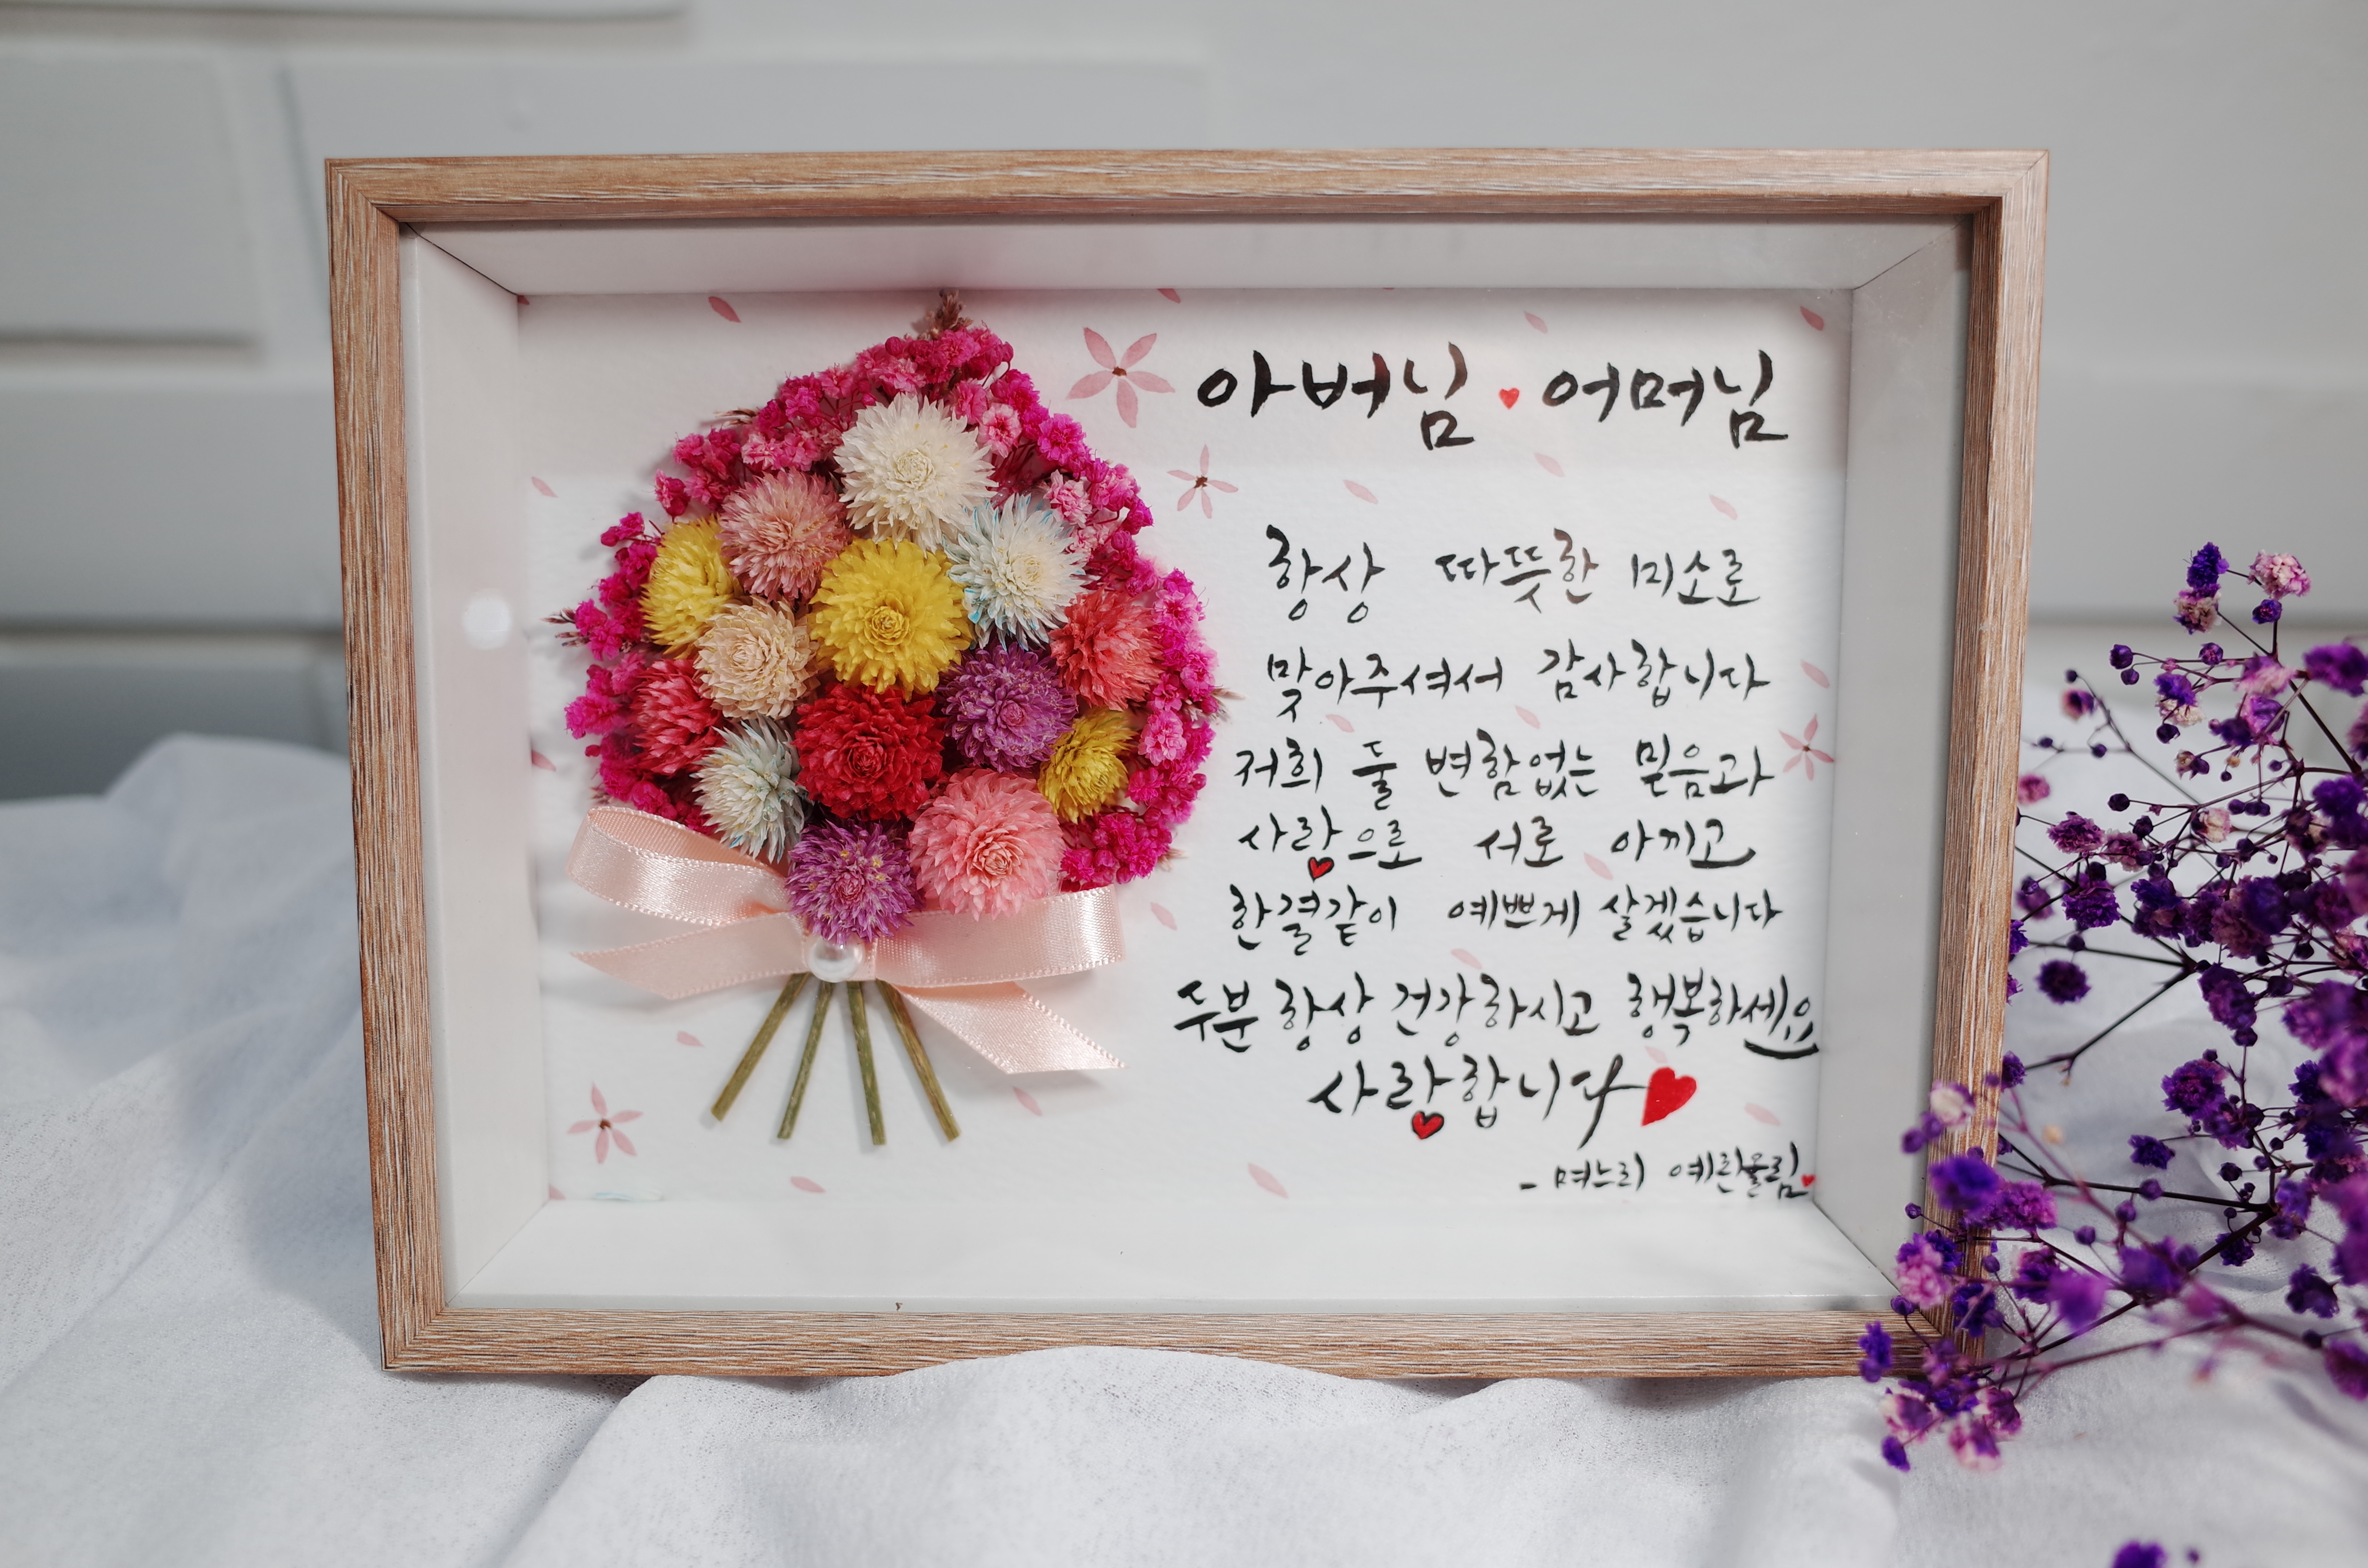 아버님 ♥ 어머님
항상 따뜻한 미소로
맞아주셔서 감사합니다
저희 둘 변함없는 믿음과
사랑으로 서로 아끼고
한결같이 예쁘게 살겠습니다
두분 항상 건강하시고 행복하세요
사랑합니다
- 며느리 예린올림